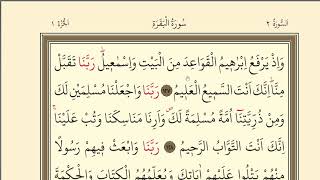 السورة ٢ سورة البقرة الجزء ١
وَاِذْ يَرْفَعُ اِبْرٰهٖيمُ الْقَوَاعِدَ مِنَ الْبَيْتِ وَاِسْمٰعٖيلُؕ رَبَّنَا تَقَبَّلْ
مِنَّاؕ اِنَّكَ اَنْتَ السَّمٖيعُ الْعَلٖيمُ ﴿١٢٧﴾ رَبَّنَا وَاجْعَلْنَا مُسْلِمَيْنِ لَكَ
وَمِنْ ذُرِّيَّتِنَٓا اُمَّةً مُسْلِمَةً لَكَ وَاَرِنَا مَنَاسِكَنَا وَتُبْ عَلَيْنَاۚ
اِنَّكَ اَنْتَ التَّوَّابُ الرَّحٖيمُ ﴿١٢٨﴾ رَبَّنَا وَابْعَثْ فٖيهِمْ رَسُولًا
مِنْهُمْ يَتْلُوا عَلَيْهِمْ اٰيَاتِكَ وَيُعَلِّمُهُمُ الْكِتَابَ وَالْحِكْمَةَ